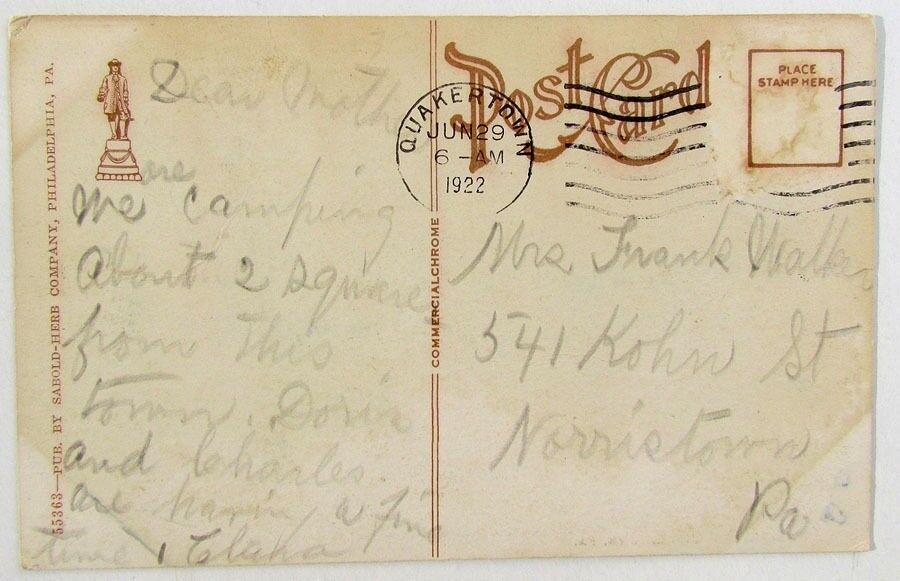 55363—PUB. BY SABOLD-HERB COMPANY, PHILADELPHIA, PA.
Dear Moth
We are camping
about 2 square
from This
town. Doris
and Charles
are havin, a fine
time, Clara
COMMERCIALCHROME
Post Card
QUAKERTOWN
JUN 29
6 - AM
1922
PLACE
STAMP HERE
Mrs Frank Walker
541 Kohn St
Norristown
Pa